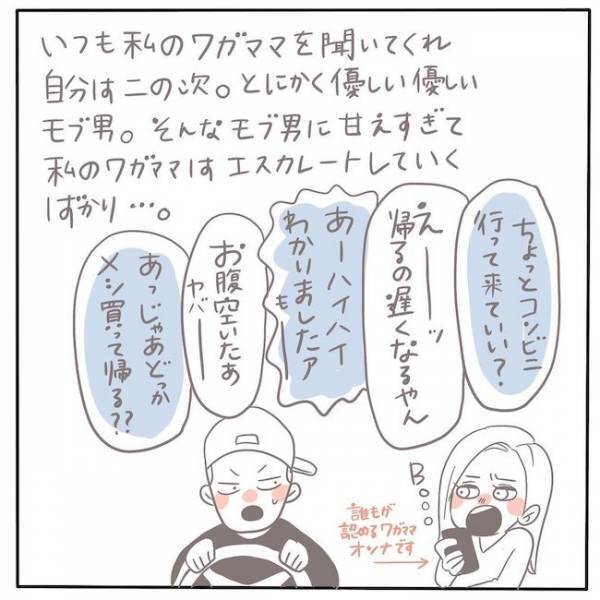 いつも私のワガママを聞いてくれ
自分は二の次。とにかく優しい優しい
モブ男。そんなモブ男に甘えすぎて
私のワガママはエスカレートしていく
ばかり…。
ちょっとコンビニ
行って来ていい？
えーーーッ
帰るの遅くなるやん
あーハイハイ
わかりましたァ
も
ー
お腹空いたぁ
ヤバーー
あっじゃあどっか
メシ買って帰る??
B○○○
誰もが
認めるワガママ
オンナです